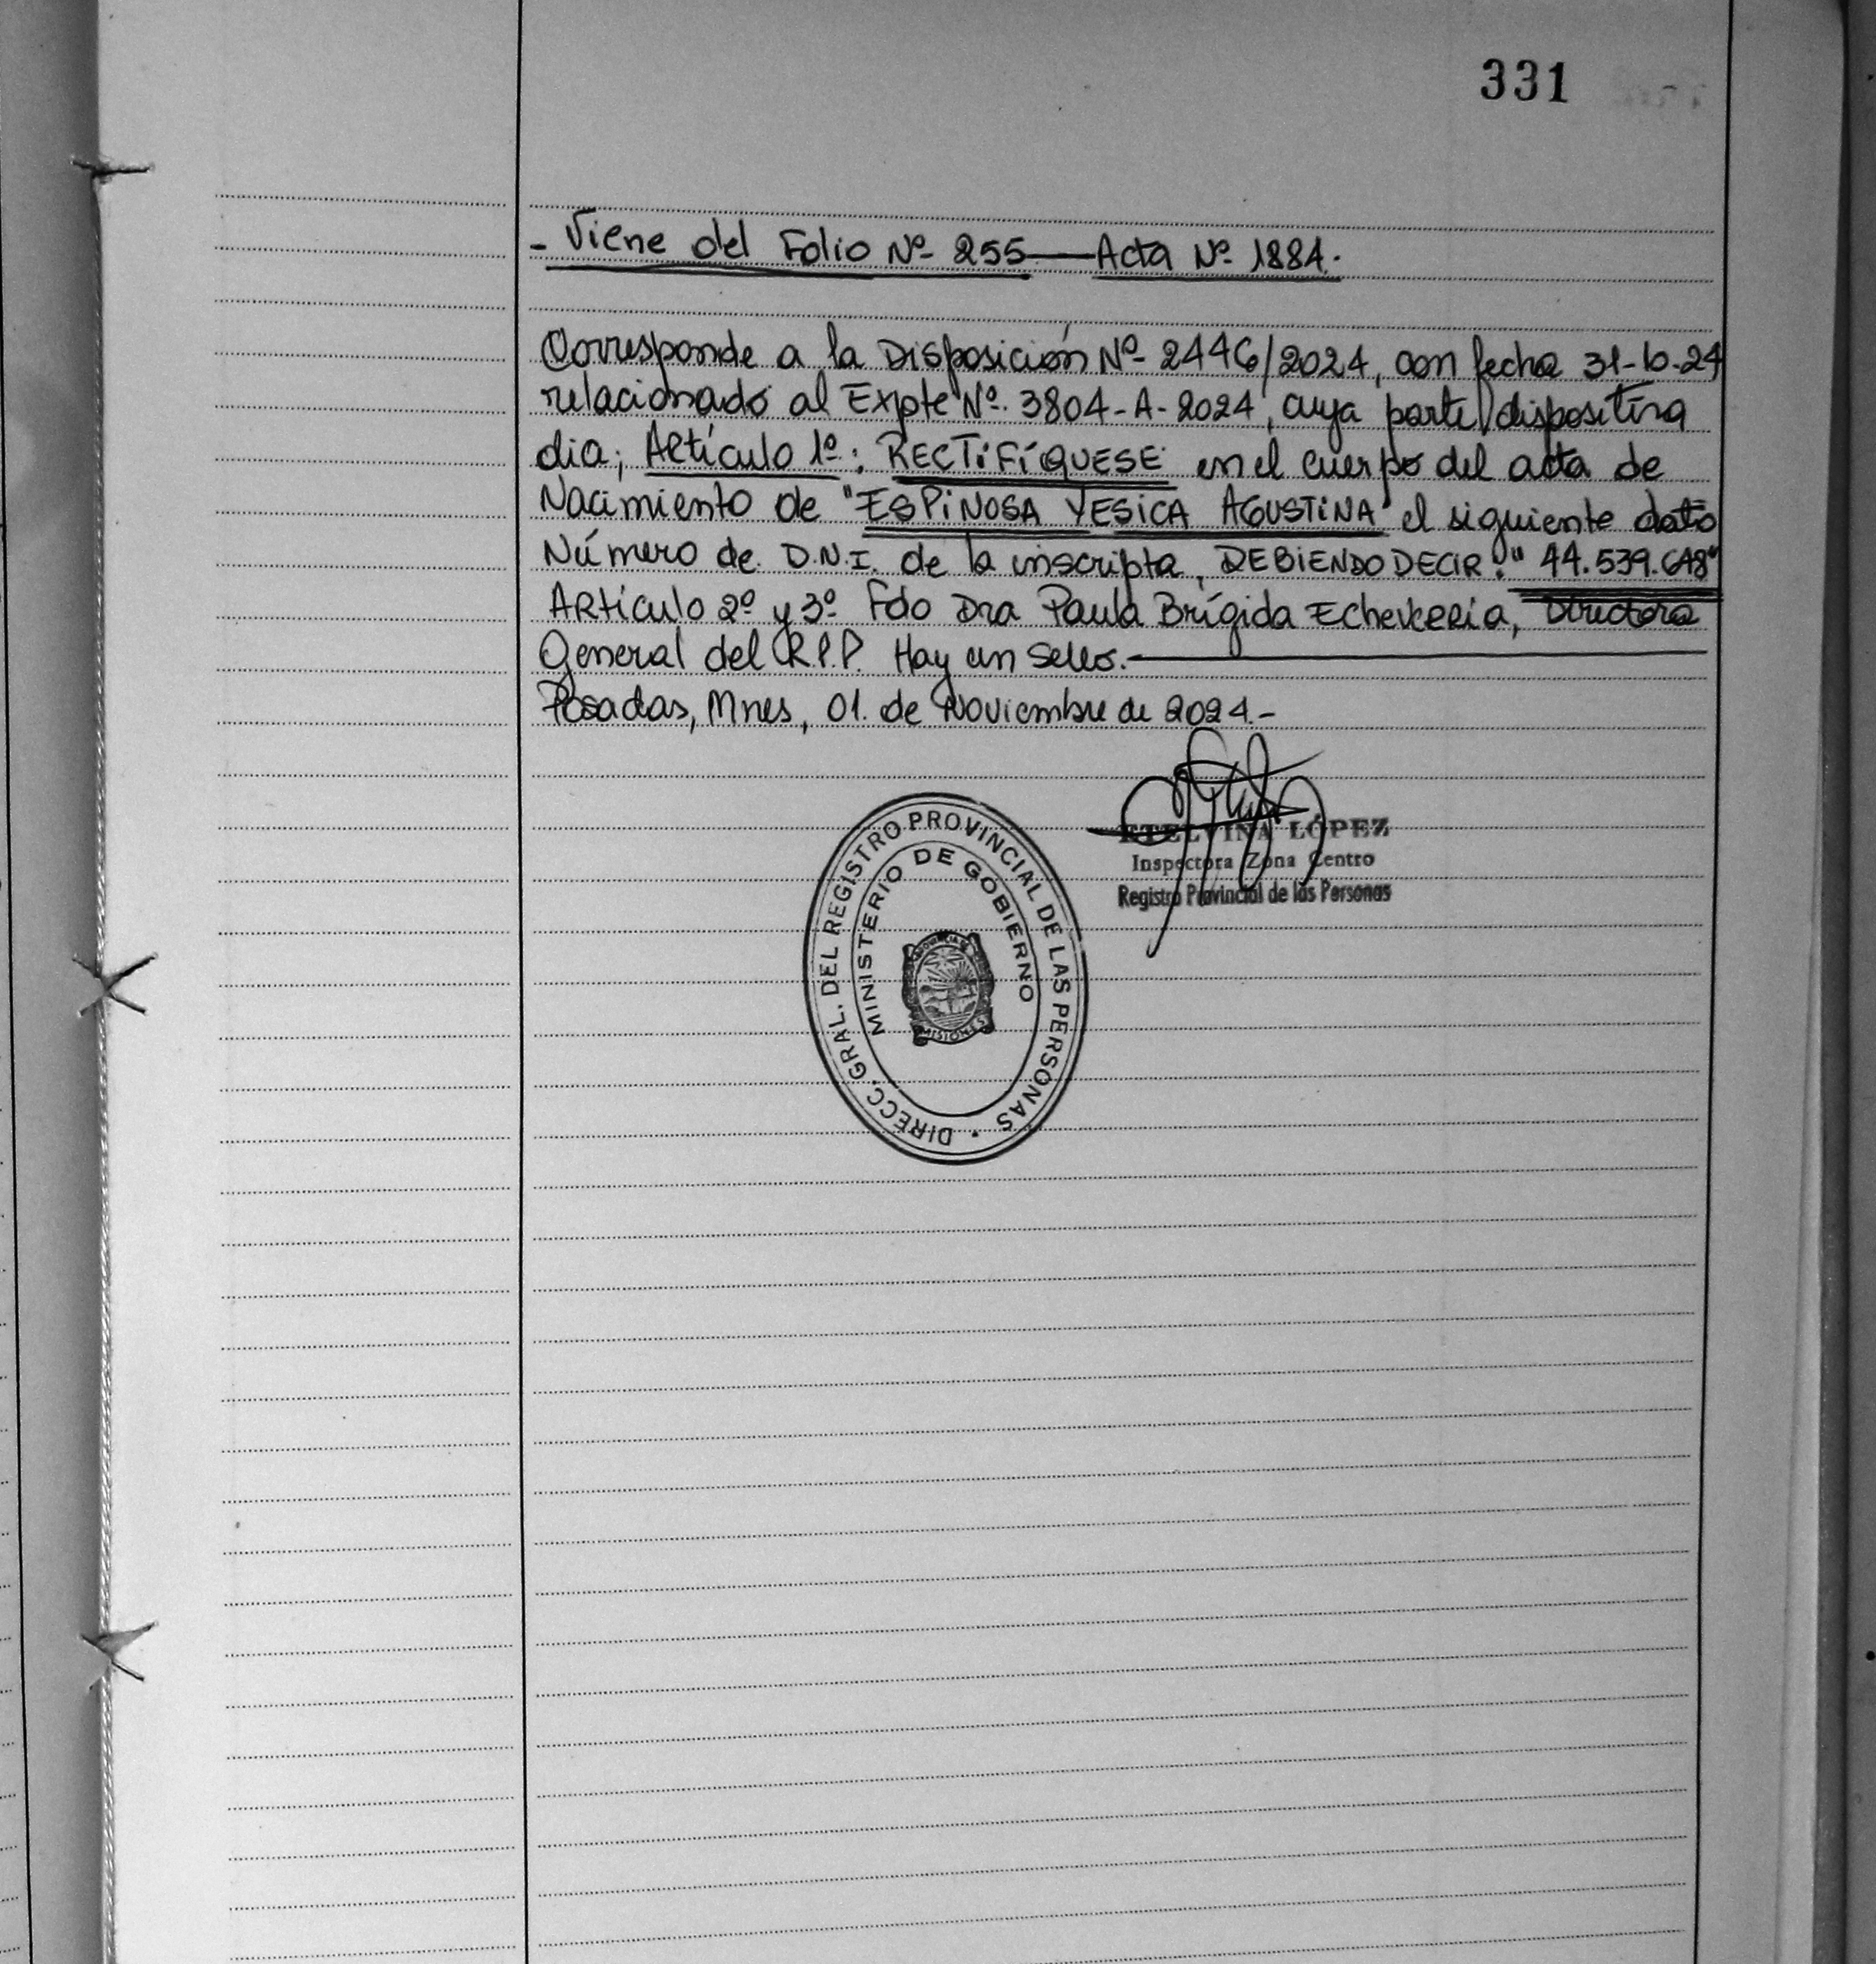 331
- Viene del Folio Nº 255 — Acta Nº 1884.
Corresponde a la Disposición Nº 2446/2024, con fecha 31-10-24
relacionado al Expte Nº. 3804-A-2024, cuya parte dispositiva
dia; Artículo 1º: RECTIFÍQUESE en el cuerpo del acta de
Nacimiento de "ESPINOSA YESICA AGUSTINA" el siguiente dato
Número de D.N.I. de la inscripta, DEBIENDO DECIR: "44.539.648"
Artículo 2º y 3º Fdo Dra Paula Brígida Echeverria, Directora
General del R.P.P. Hay un sello.
Posadas, Mnes, 01. de Noviembre de 2024.-
ETELVINA LÓPEZ
Inspectora Zona Centro
Registro Provincial de las Personas
DIRECC. GRAL. DEL REGISTRO PROVINCIAL DE LAS PERSONAS
MINISTERIO DE GOBIERNO
PROVINCIA DE
MISIONES